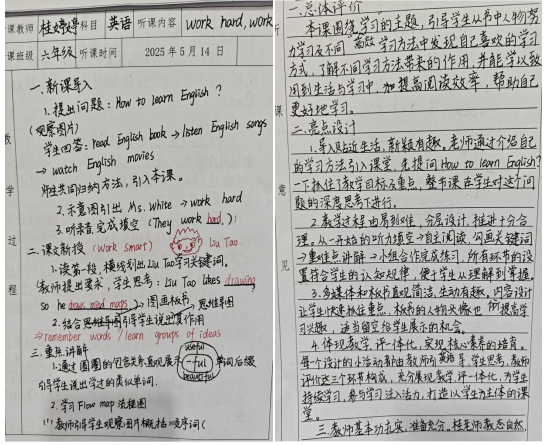 课教师 桂婷婷 科目 英语 听课内容 work hard, work
课班级 六年级 听课时间 2025年5月14日
教
学
过
程
一.新课导入
1.提出问题：How to learn English？
(观察图片)
学生回答：read English book → listen English songs
→ watch English movies
师生共同归纳方法，引入本课。
2.示意图引出 Ms. White → work hard
3.听录音完成填空 (They work hard.)
二.课文新授 (Work smart) Liu Tao
1.读第一段，横线划出Liu Tao学习关键词。
教师提出要求，学生思考：Liu Tao likes drawing,
so he draws mind maps. → 图画板书 思维导图
2.结合思维导图引导学生说出其作用
⇒ remember words / learn groups of ideas
三.重点讲解
useful
1.通过圆圈的包含关系直观展示 -ful 单词后缀
beautiful
引导学生说出学过的类似单词.
2.学习Flow map 流程图
(1)教师引导学生观察图片概括顺序词(
课
意
见
一.总体评价
本课围绕学习的主题，引导学生从书中人物努
力学习及不同"高效"学习方法中发现自己喜欢的学习
方式，了解不同学习方法带来的作用，并能学以致
用到生活与学习中，提高阅读效率，帮助自己
更好地学习。
二.亮点设计
1.导入贴近生活，新颖有趣。老师通过介绍自己
的学习方法引入课堂，先提问How to learn English?
一下抓住了教学目标及重点，整节课在学生对这个问
题的深度思考下进行。
2.教学过程由易到难，分层设计，推进十分合
理。从一开始的听力填空→自主阅读，勾画关键词
→重难点讲解→小组合作完成练习，所有环节的设
置符合学生的认知规律，便于学生理解到掌握。
3.多媒体和板书直观简洁，生动有趣。内容设计
让学生快速抓住重点，板书的人物头像也能提高学
习兴趣，适当留空给学生展示的机会。
4.体现教学评一体化，实现核心素养的培育。
每个设计的小活动都由教师引导，学生思考，教师
评价这三个环节构成，充分展现教学评一体化，为学生
持续学习，参与学习注入活力，打造以学生为主体的课
堂。
三.教师基本功扎实，准备充分。桂老师教态自然，